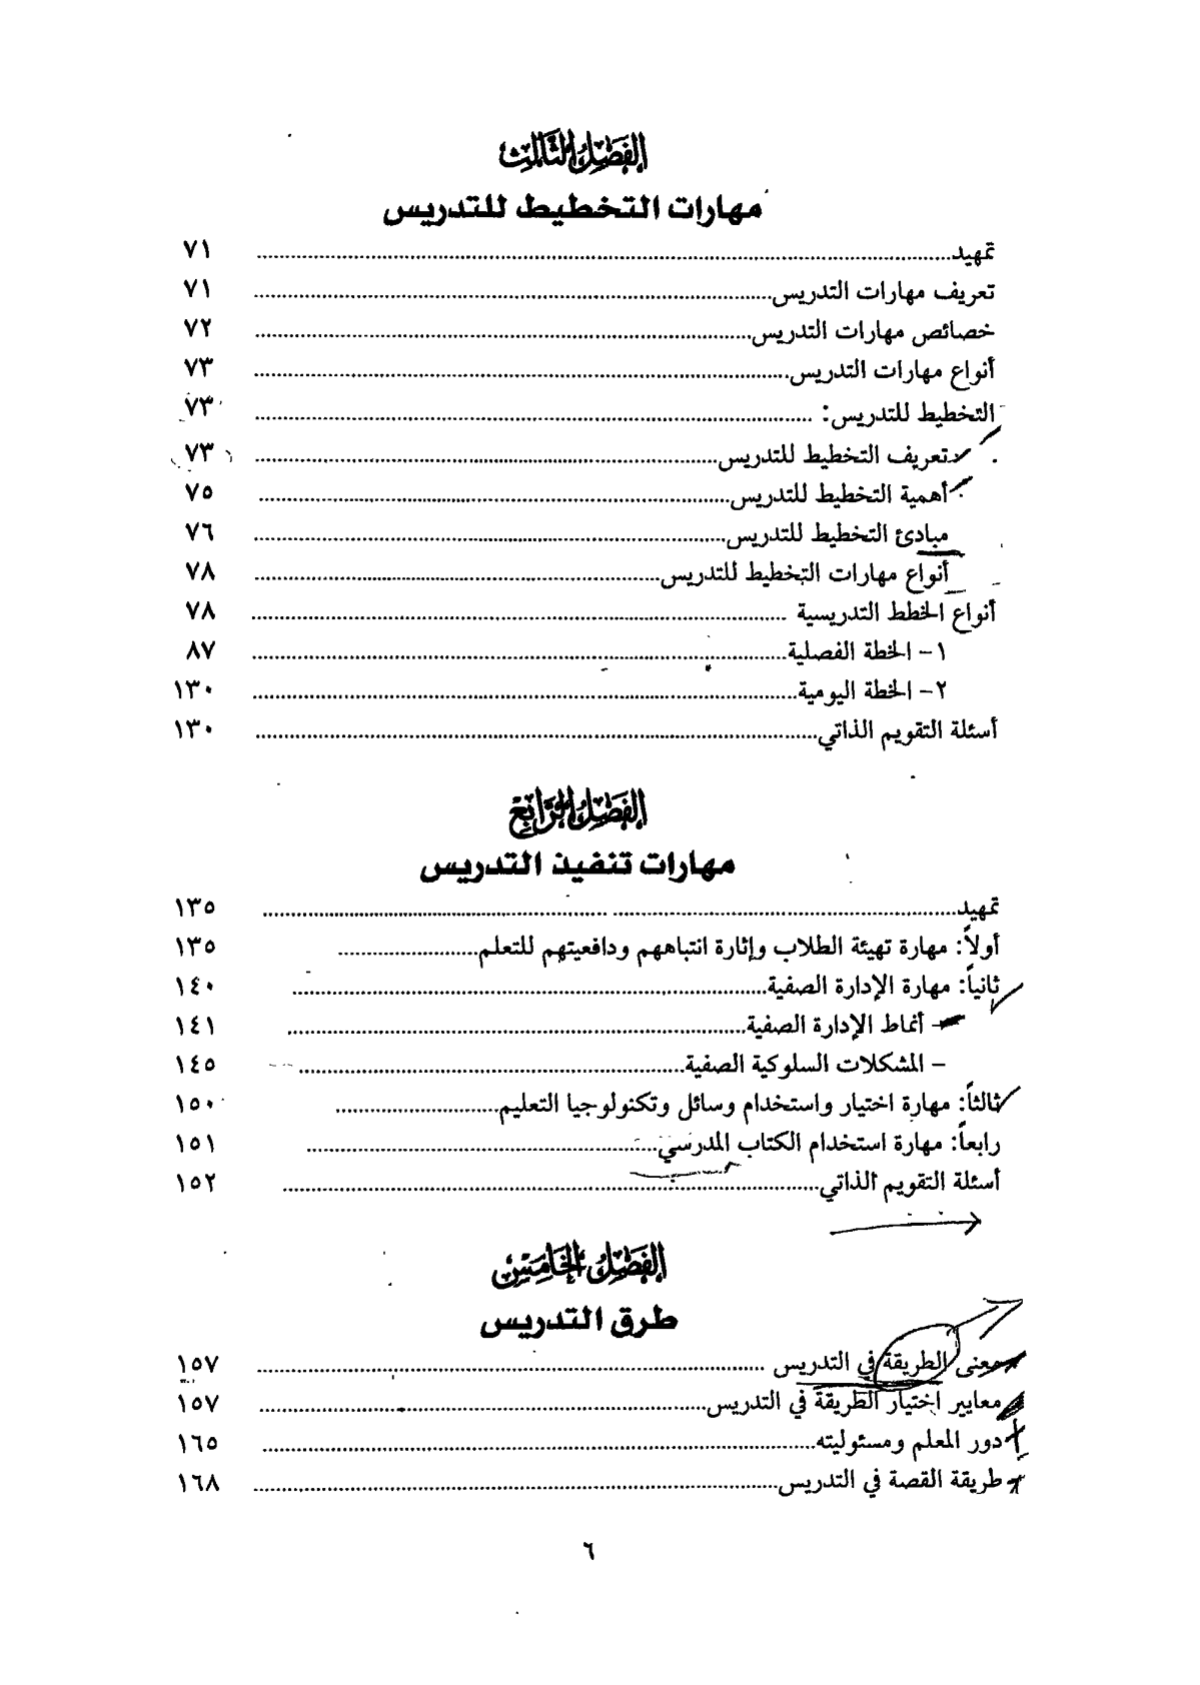 الفصل الثالث
مهارات التخطيط للتدريس
تمهيد ٧١
تعريف مهارات التدريس ٧١
خصائص مهارات التدريس ٧٢
أنواع مهارات التدريس ٧٣
التخطيط للتدريس: ٧٣
تعريف التخطيط للتدريس ٧٣
أهمية التخطيط للتدريس ٧٥
مبادئ التخطيط للتدريس ٧٦
أنواع مهارات التخطيط للتدريس ٧٨
أنواع الخطط التدريسية ٧٨
١- الخطة الفصلية ٨٧
٢- الخطة اليومية ١٣٠
أسئلة التقويم الذاتي ١٣٠
الفصل الرابع
مهارات تنفيذ التدريس
تمهيد ١٣٥
أولاً: مهارة تهيئة الطلاب وإثارة انتباههم ودافعيتهم للتعلم ١٣٥
ثانياً: مهارة الإدارة الصفية ١٤٠
- أنماط الإدارة الصفية ١٤١
- المشكلات السلوكية الصفية ١٤٥
ثالثاً: مهارة اختيار واستخدام وسائل وتكنولوجيا التعليم ١٥٠
رابعاً: مهارة استخدام الكتاب المدرسي ١٥١
أسئلة التقويم الذاتي ١٥٢
الفصل الخامس
طرق التدريس
معنى الطريقة في التدريس ١٥٧
معايير اختيار الطريقة في التدريس ١٥٧
دور المعلم ومسئوليته ١٦٥
طريقة القصة في التدريس ١٦٨
٦